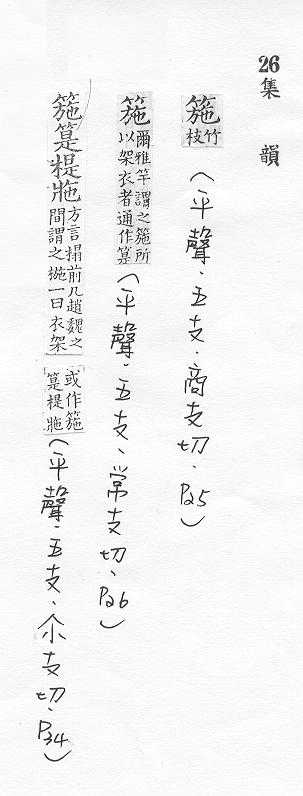 26集 韻
箷竹枝(平聲.五支.商支切.P.25)
箷爾雅竿謂之箷所以架衣者通作箟(平聲.五支、常支切、P.26)
箷箟㮛㸟方言榻前几趙魏之間謂之椸一曰衣架或作箷箟㮛㸟(平聲.五支、尒支切、P.34)